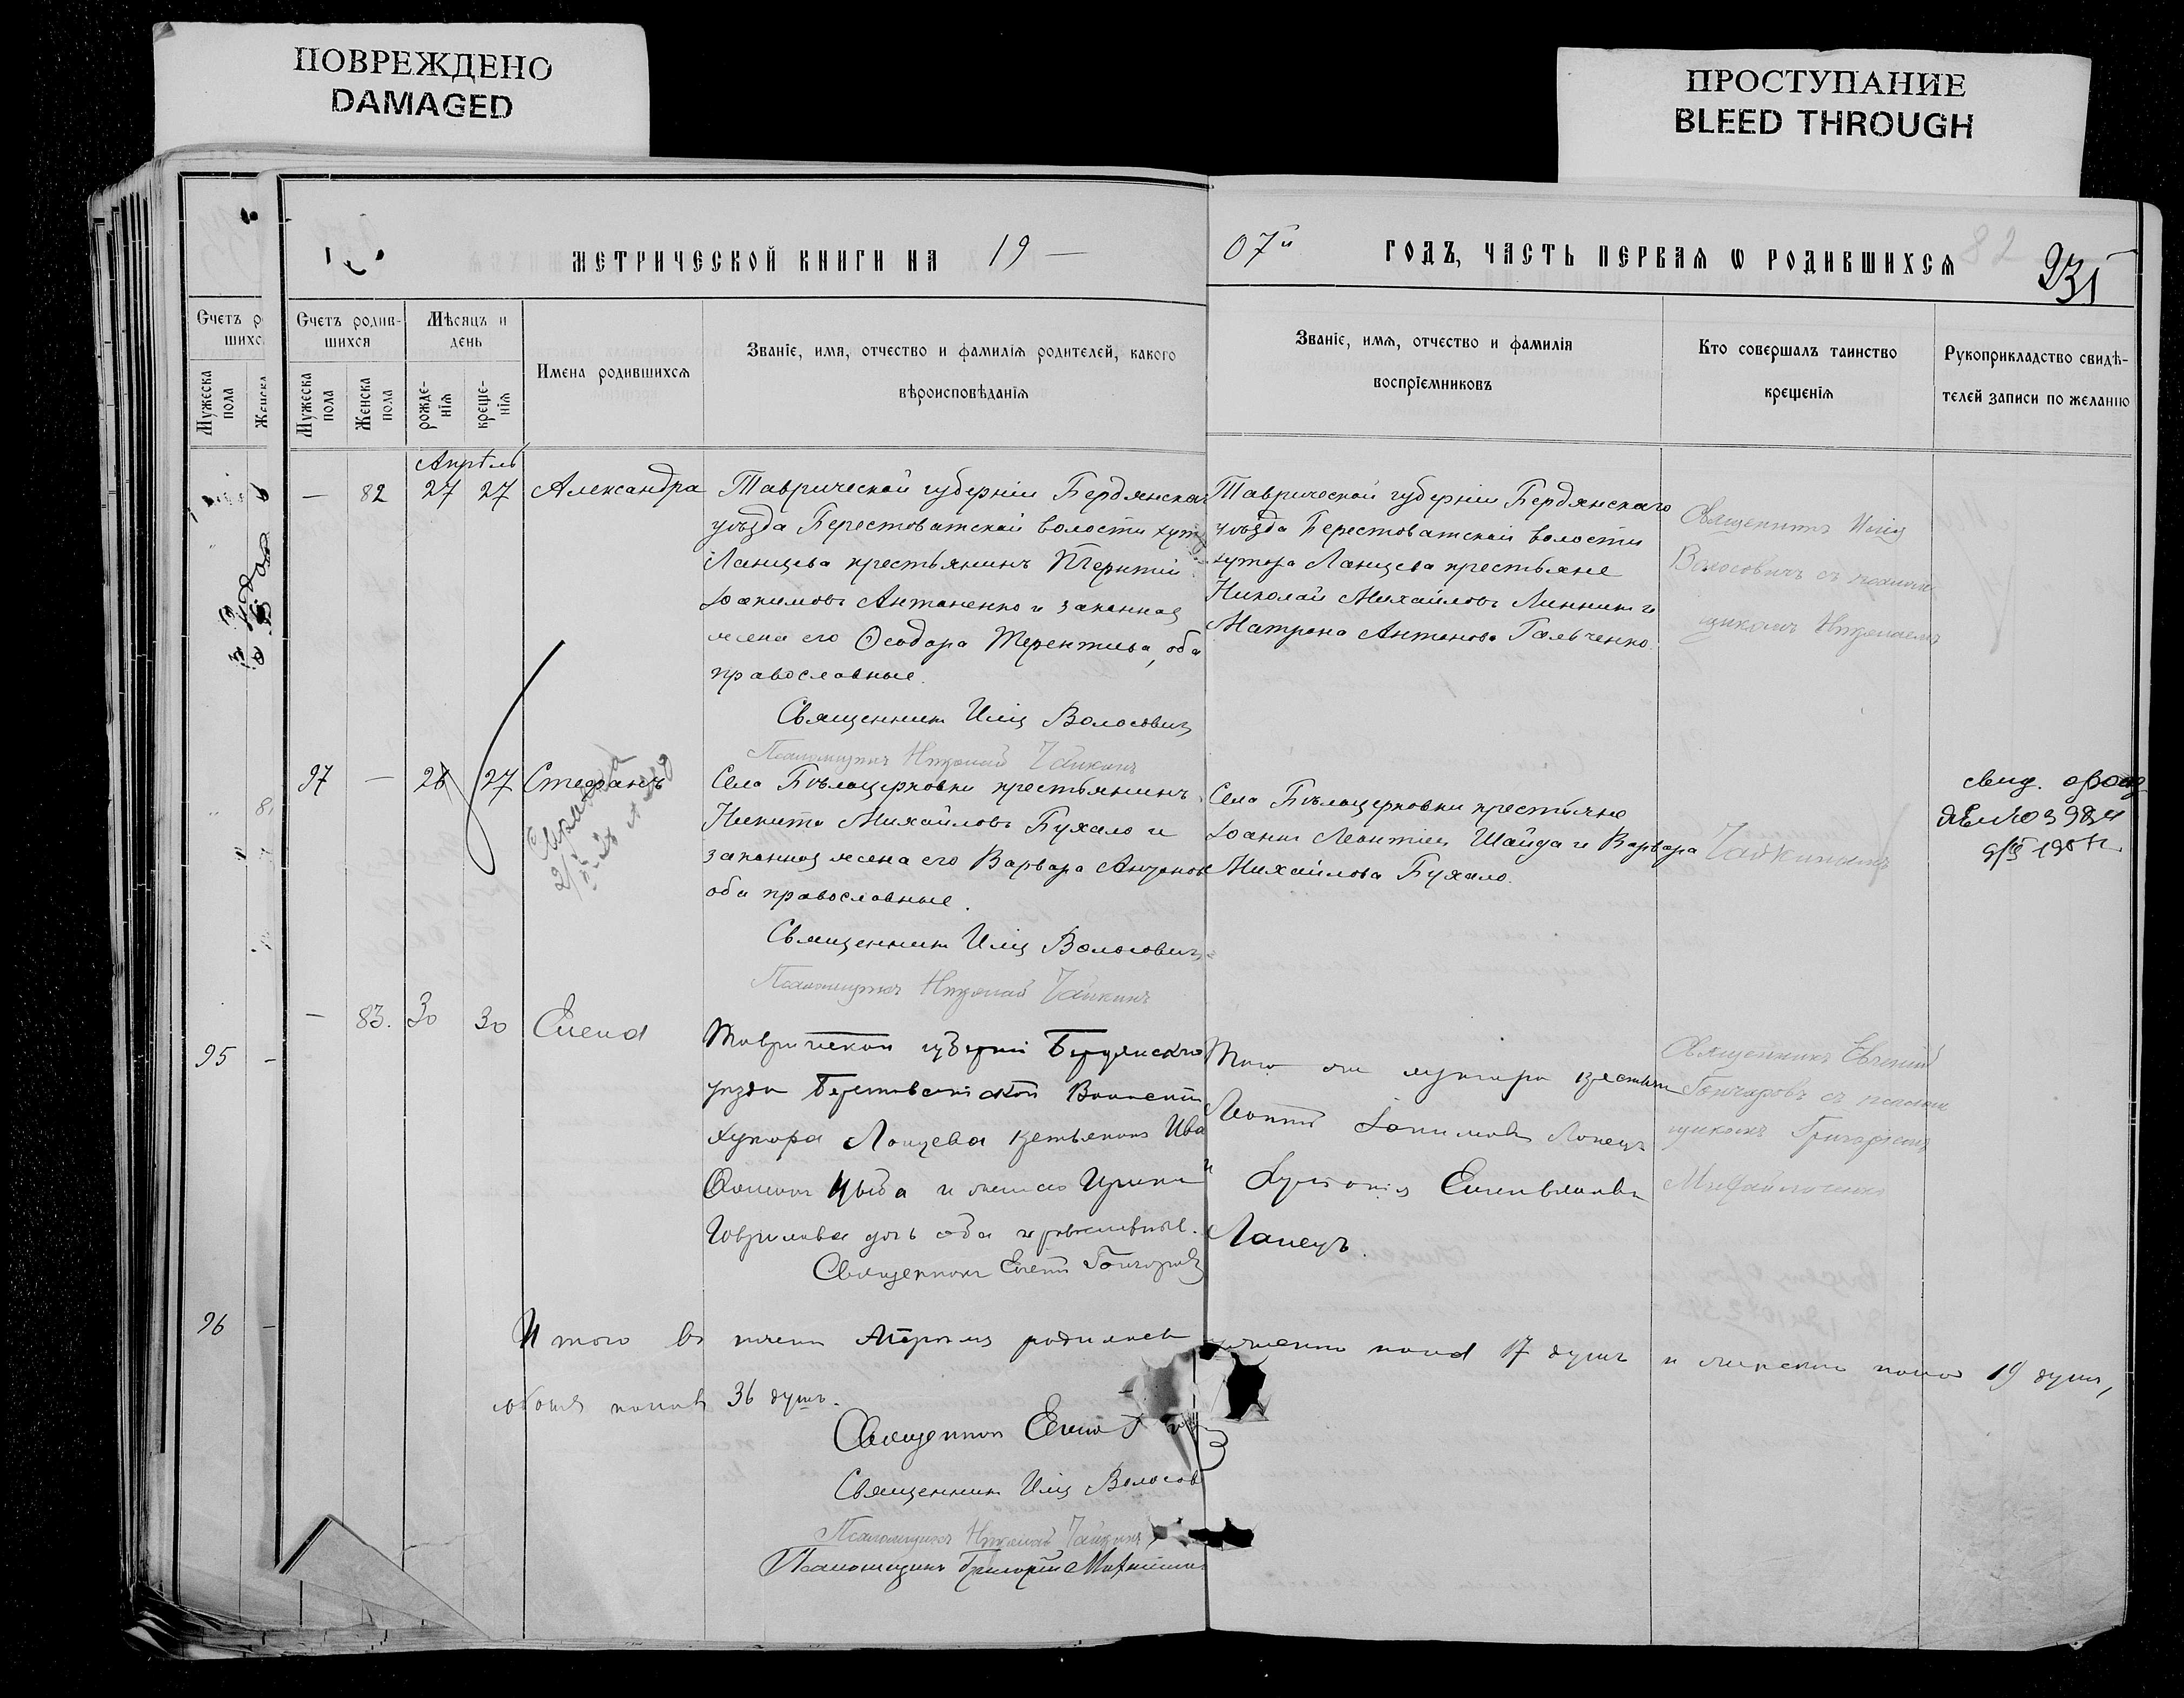 ПОВРЕЖДЕНО
DAMAGED
ПРОСТУПАНИЕ
BLEED THROUGH
МЕТРИЧЕСКОЙ КНИГИ НА 19 —
07й ГОДЪ, ЧАСТЬ ПЕРВАЯ Ѡ РОДИВШИХСЯ
82
231
Счетъ родив-
шихся
Мѣсяцъ и
день
Мужеска
пола
Женска
пола
рожде-
нія
креще-
нія
Имена родившихся
Званіе, имя, отчество и фамилія родителей, какого
вѣроисповѣданія
Званіе, имя, отчество и фамилія
воспріемниковъ
Кто совершалъ таинство
крещенія
Рукоприкладство свидѣ-
телей записи по желанію
Апрѣль
— 82 27 27 Александра
Таврической губерніи Бердянскаго
уѣзда Берестоватской волости хут
Ланцева крестьянинъ Терентій
Іоакимовъ Антоненко и законная
жена его Ѳеодора Терентьева, оба
православные.
Священникъ Илія Волосовичъ
Псаломщикъ Николай Чайкинъ
Таврической губерніи Бердянскаго
уѣзда Берестоватской волости
хутора Ланцева крестьяне
Николай Михайловъ Линникъ и
Матрона Антонова Гальченко.
Священникъ Илія
Волосовичъ съ псалом-
щикомъ Николаемъ
Чайкинымъ
97 — 26 27 Стефанъ
Села Бѣлоцерковки крестьянинъ
Никита Михайловъ Бухало и
законная жена его Варвара Антонова
оба православные.
Священникъ Илія Волосовичъ
Псаломщикъ Николай Чайкинъ
Села Бѣлоцерковки крестьяне
Іоаннъ Леонтіевъ Шайда и Варвара
Михайлова Бухало.
свид.
— 83. 30 30 Елена
Таврической губерніи Бердянскаго
уѣзда Берестоватской Волости
Хутора Ланцева крестьянинъ Ива
Цыба и жена его Ирина
Гаврилова оба православные.
Священникъ Евгеній Гончаровъ
Того же хутора крестьяне
Леонтій Іоакимовъ Ланецъ
и Емельянова
Ланецъ.
Священникъ Евгеній
Гончаровъ съ псалом
щикомъ Григоріемъ
95 —
96 —
Итого въ Апрѣлѣ родилось мужеска пола 17 душъ и женска пола 19 душъ,
обоего пола 36 душъ.
Священникъ Евгеній
Священникъ Илія Волосов
Псаломщикъ Николай Чайкинъ
Псаломщикъ Григорій